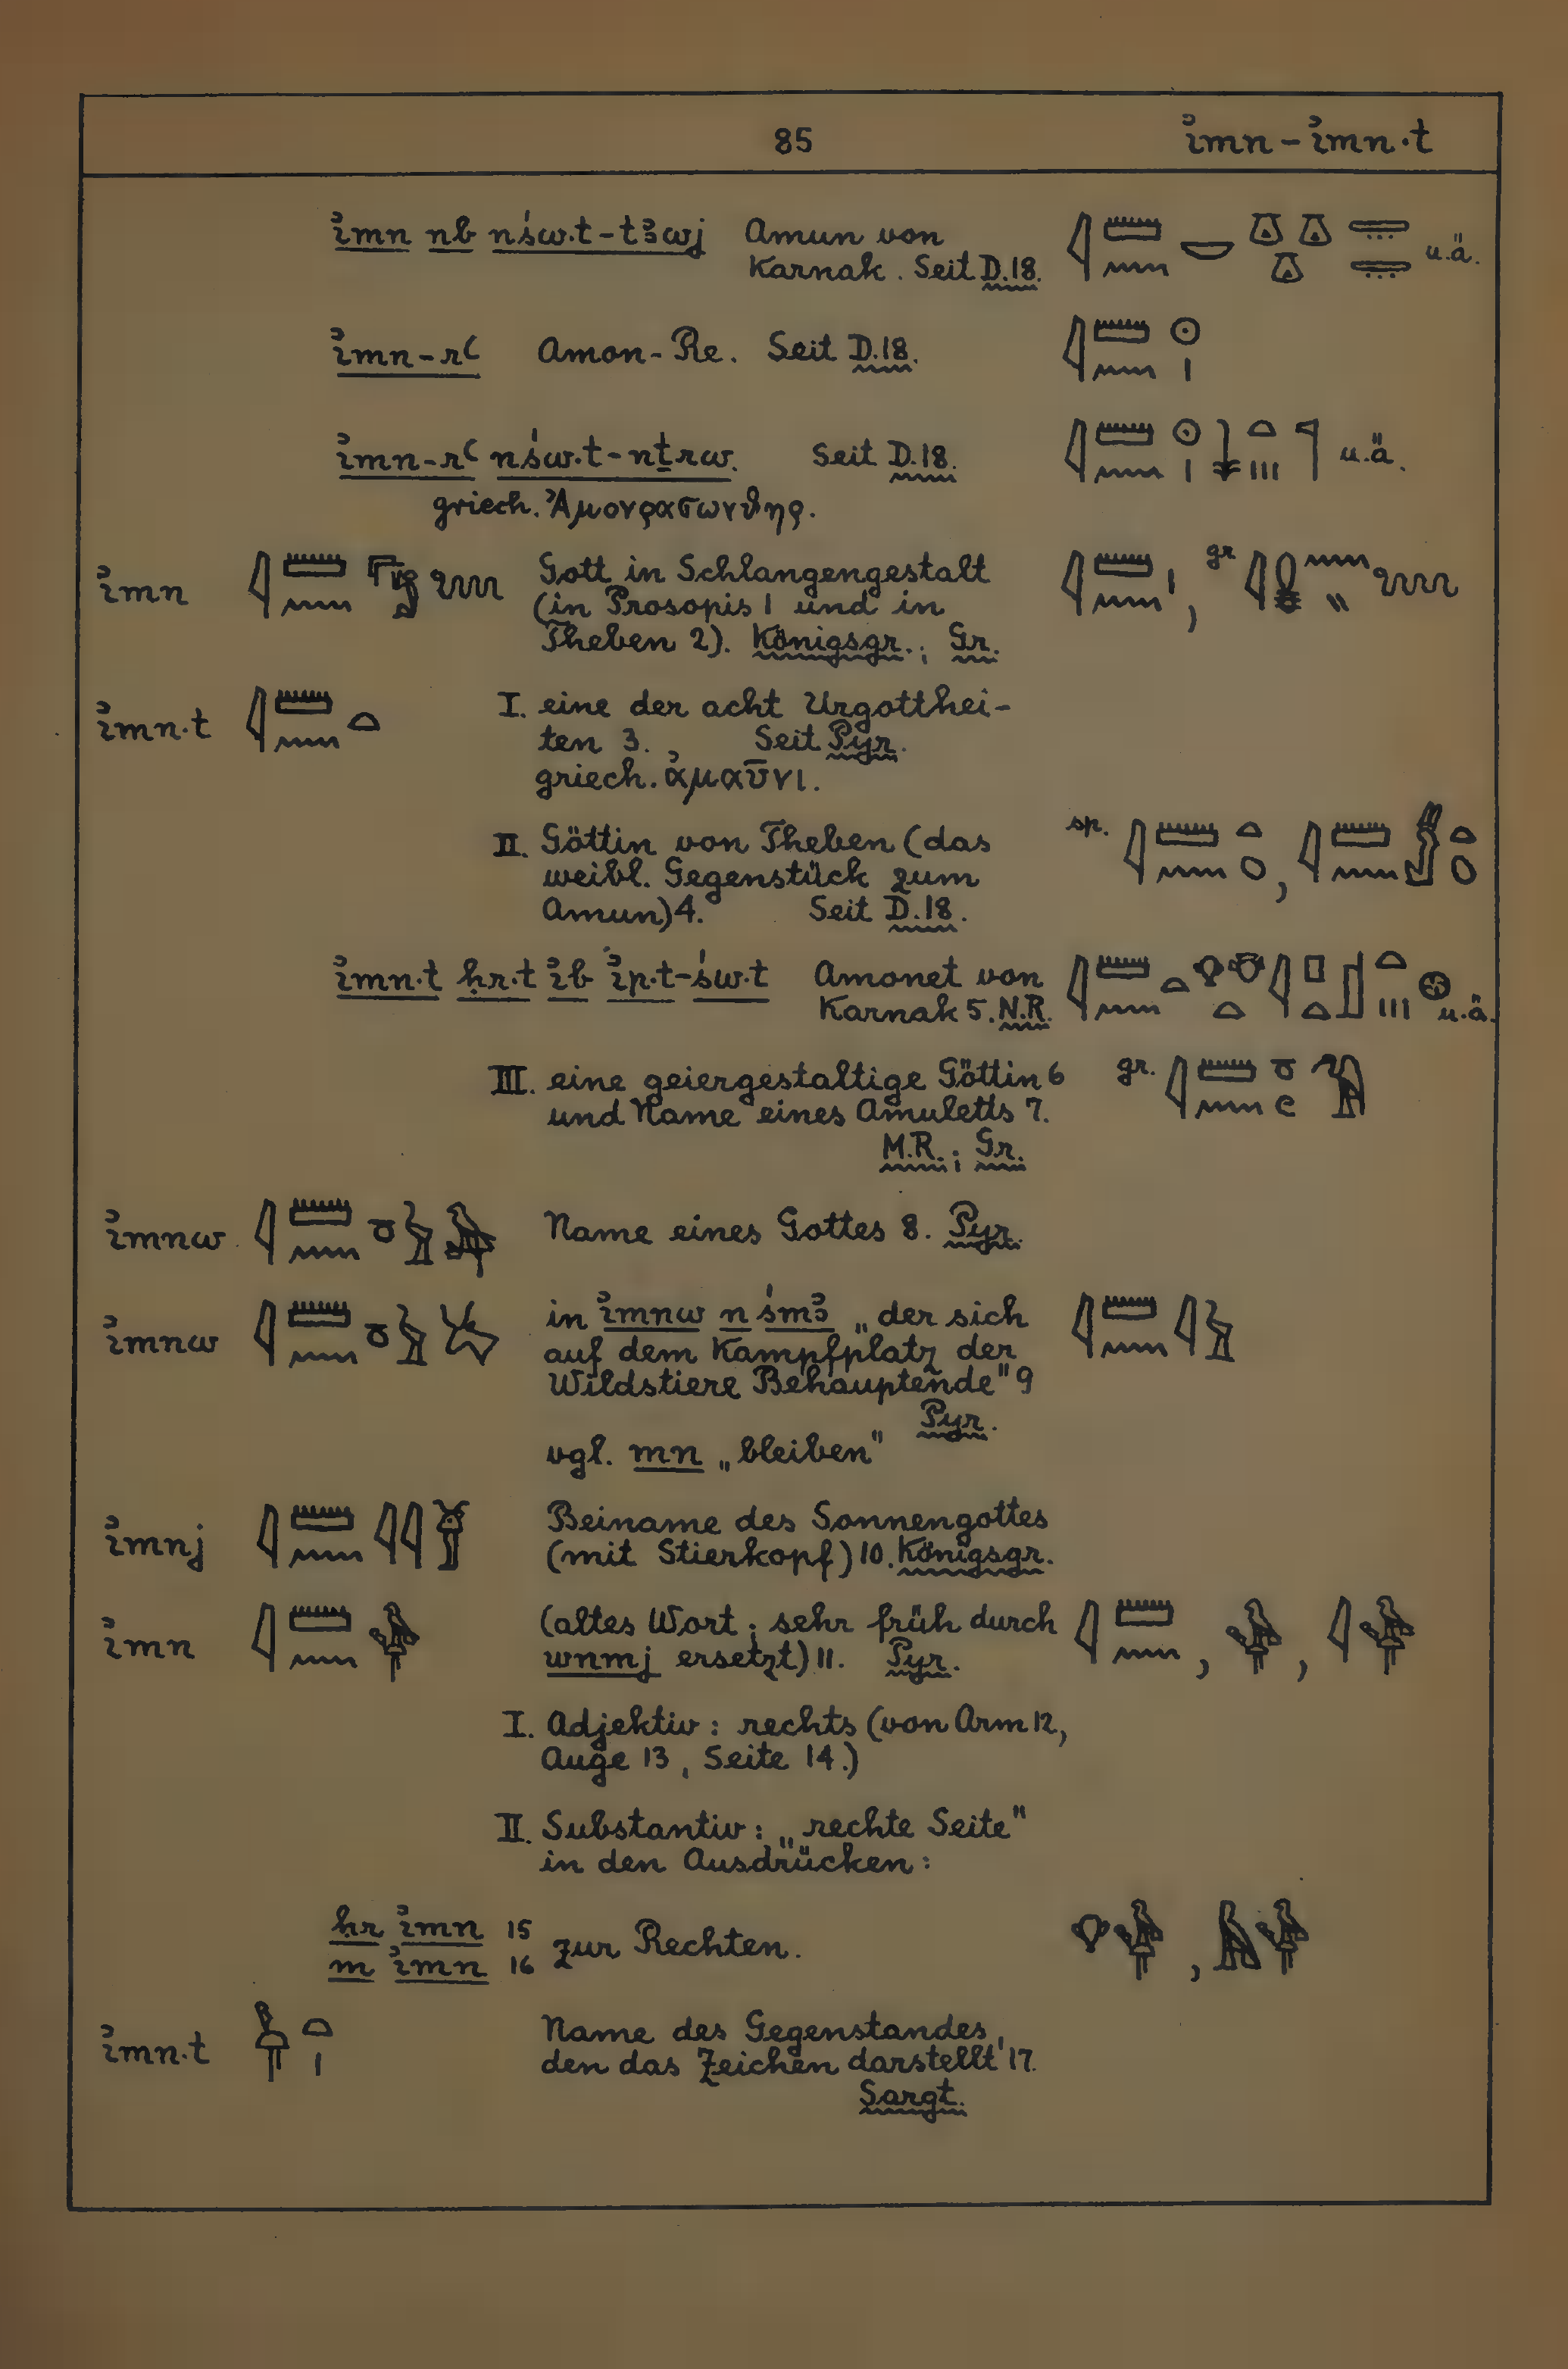 85 ỉmn – ỉmn·t
ỉmn nb nśw.t-tꜣwj Amun von
Karnak. Seit D.18. u.ä.
ỉmn-rꜥ Amon-Re. Seit D.18.
ỉmn-rꜥ nśw.t-nṯrw. Seit D.18. u.ä.
griech. Ἀμονρασωνθηρ.
ỉmn Gott in Schlangengestalt gr
(in Prosopis 1 und in
Theben 2). Königsgr.; Gr.
ỉmn·t I. eine der acht Urgotthei-
ten 3. Seit Pyr.
griech. ἀμαῦνι.
II. Göttin von Theben (das sp.
weibl. Gegenstück zum
Amun) 4. Seit D.18.
ỉmn·t ḥr.t ỉb ỉp.t-św.t Amonet von
Karnak 5. N.R. u.ä.
III. eine geiergestaltige Göttin 6 gr.
und Name eines Amuletts 7.
M.R.; Gr.
ỉmnw Name eines Gottes 8. Pyr.
ỉmnw in ỉmnw n śmꜣ „der sich
auf dem Kampfplatz der
Wildstiere Behauptende" 9
Pyr.
vgl. mn „bleiben"
ỉmnj Beiname des Sonnengottes
(mit Stierkopf) 10. Königsgr.
ỉmn (altes Wort; sehr früh durch
wnmj ersetzt) 11. Pyr.
I. Adjektiv: rechts (von Arm 12,
Auge 13, Seite 14.)
II. Substantiv: „rechte Seite"
in den Ausdrücken:
ḥr ỉmn 15
m ỉmn 16 zur Rechten.
ỉmn·t Name des Gegenstandes,
den das Zeichen darstellt 17.
Sargt.